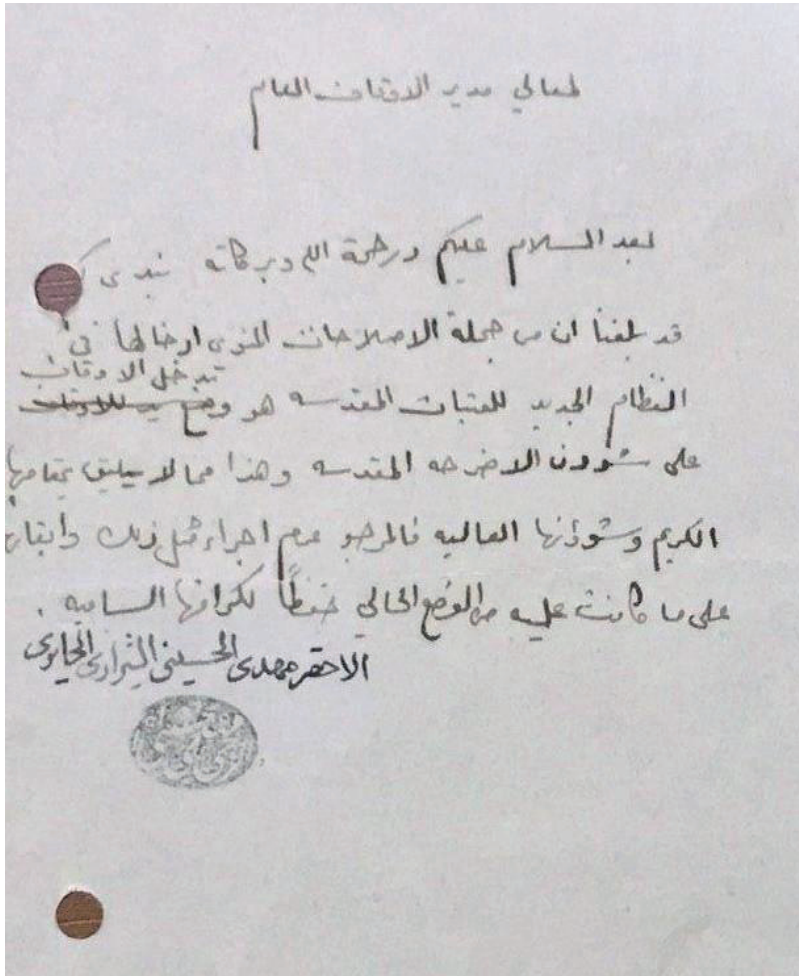 لمعالي مدير الاوقاف العام
بعد السلام عليكم ورحمة الله وبركاته نبدي
قد بلغنا ان من جملة الاصلاحات المنوى ادخالها في
تدخل الاوقاف
النظام الجديد للعتبات المقدسه هو وضع يد للاوقاف
على شوون الاضرحه المقدسه وهذا مما لا يليق بمقامها
الكريم وشوونها العاليه فالمرجو عدم اجراء مثل ذلك وابقاء
على ما كانت عليه من الوضع الحالي حفظاً لكرامتها الساميه .
الاحقر مهدى الحسيني الشيرازى الحايرى